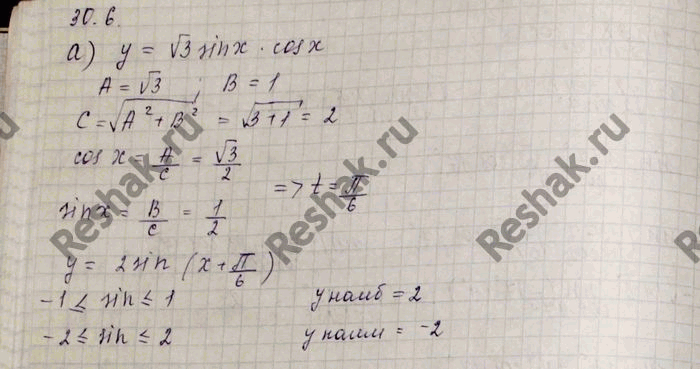 30.6.
а) y = √3 sin x · cos x
A = √3 ; B = 1
C = √A² + B² = √3+1 = 2
cos x = A/C = √3/2
=> t = π/6
sin x = B/C = 1/2
y = 2 sin (x + π/6)
-1 ≤ sin ≤ 1 y наиб = 2
-2 ≤ sin ≤ 2 y наим = -2
Reshak.ru
Reshak.ru
Reshak.ru